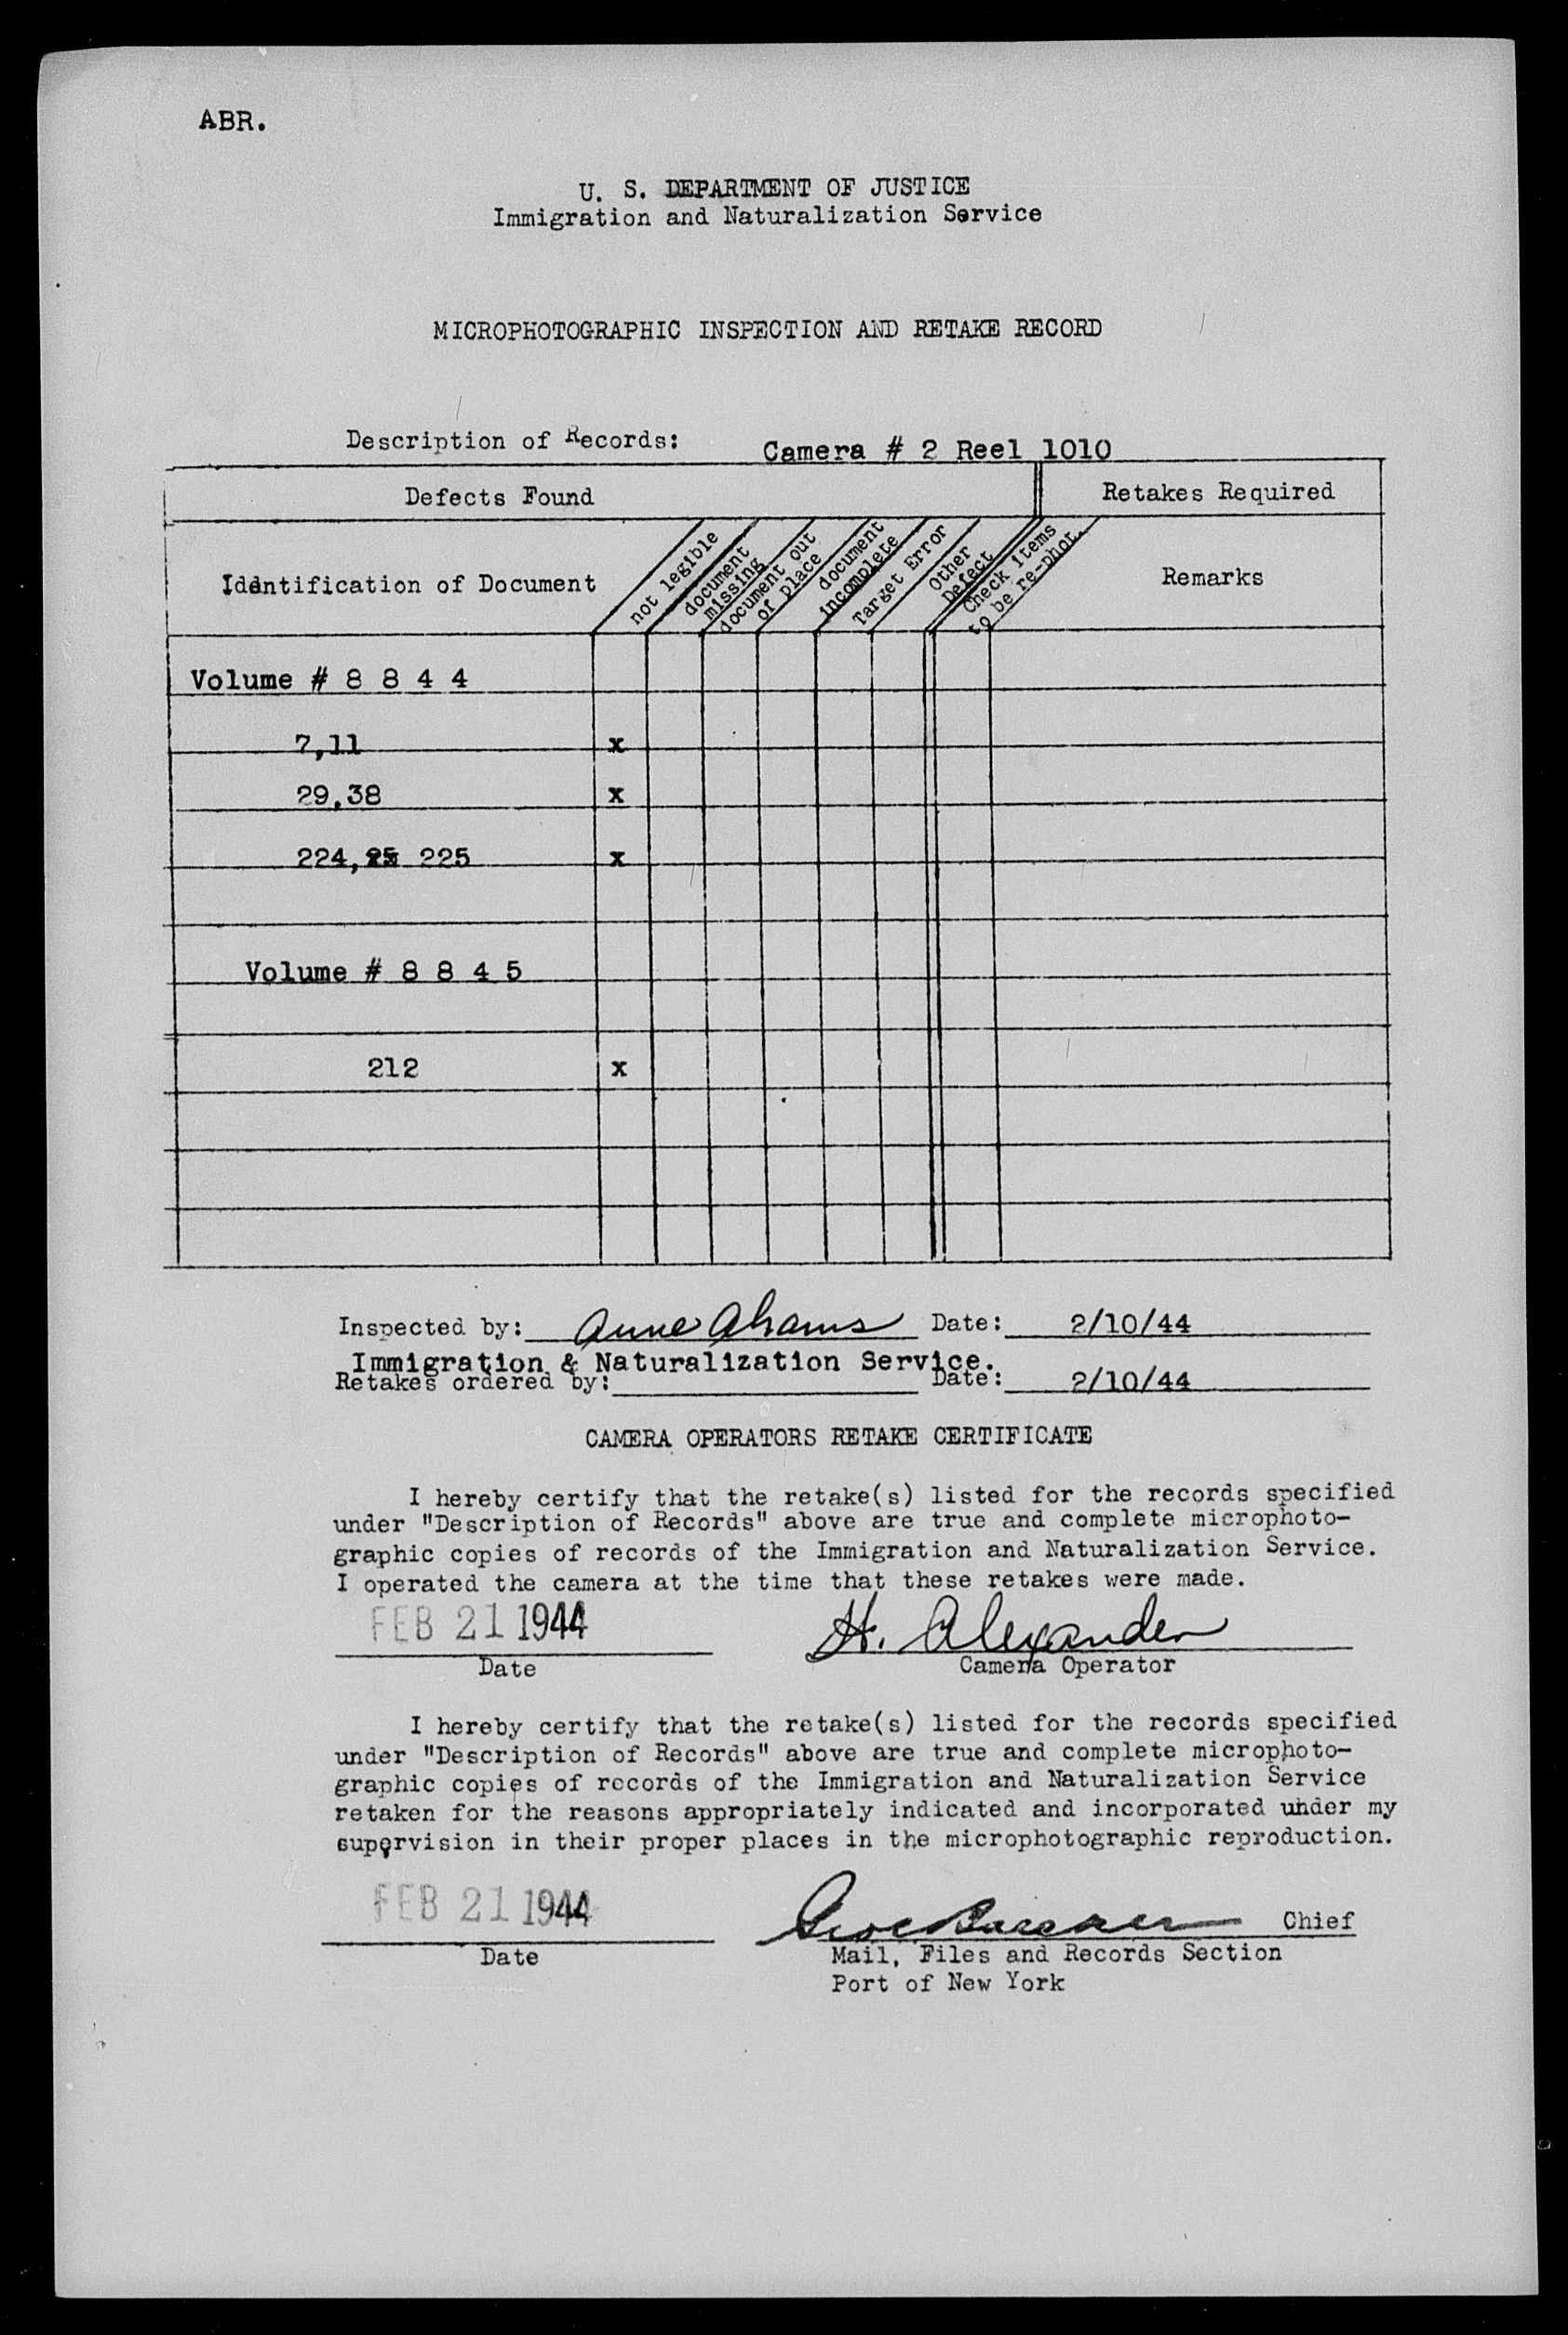 ABR.
U. S. DEPARTMENT OF JUSTICE
Immigration and Naturalization Service
MICROPHOTOGRAPHIC INSPECTION AND RETAKE RECORD
Description of Records: Camera # 2 Reel 1010
Defects Found
Retakes Required
Identification of Document
not legible
document missing
document out of place
document incomplete
Target Error
Other Defect
Check Items to be re-phot.
Remarks
Volume # 8 8 4 4
7,11 x
29,38 x
224, 225 x
Volume # 8 8 4 5
212 x
Inspected by: Anne Abrams Date: 2/10/44
Immigration & Naturalization Service.
Retakes ordered by: Date: 2/10/44
CAMERA OPERATORS RETAKE CERTIFICATE
I hereby certify that the retake(s) listed for the records specified
under "Description of Records" above are true and complete microphoto-
graphic copies of records of the Immigration and Naturalization Service.
I operated the camera at the time that these retakes were made.
FEB 21 1944 H. Alexander
Date Camera Operator
I hereby certify that the retake(s) listed for the records specified
under "Description of Records" above are true and complete microphoto-
graphic copies of records of the Immigration and Naturalization Service
retaken for the reasons appropriately indicated and incorporated under my
supervision in their proper places in the microphotographic reproduction.
FEB 21 1944 Chief
Date Mail, Files and Records Section
Port of New York